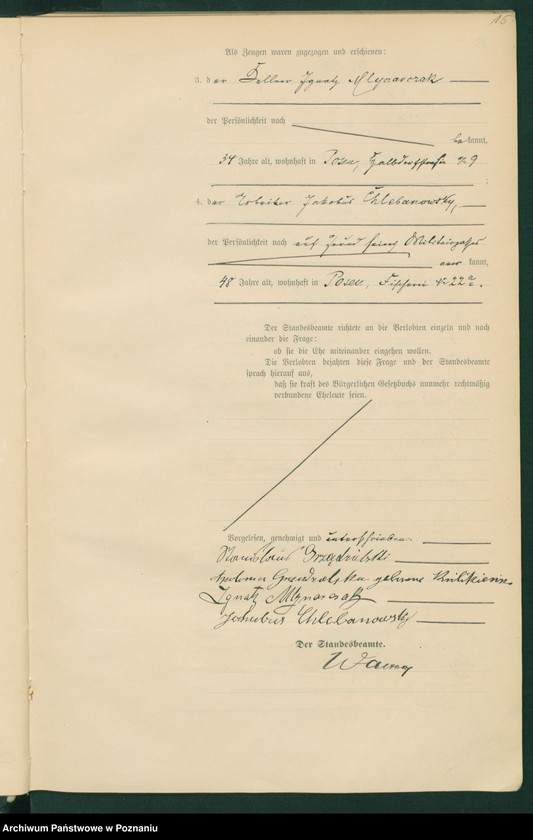 15
Als Zeugen waren zugezogen und erschienen:
3. der Kellner Ignatz Mlynarczak
der Persönlichkeit nach
bekannt,
34 Jahre alt, wohnhaft in Posen, Halbdorfstraße No 9
4. der Arbeiter Jakobus Chlebanowsky,
der Persönlichkeit nach auf Grund seines Militairpasses
aner kannt,
48 Jahre alt, wohnhaft in Posen, Fischerei No 22 a.
Der Standesbeamte richtete an die Verlobten einzeln und nach
einander die Frage:
ob sie die Ehe miteinander eingehen wollen.
Die Verlobten bejahten diese Frage und der Standesbeamte
sprach hierauf aus,
daß sie kraft des Bürgerlichen Gesetzbuchs nunmehr rechtmäßig
verbundene Eheleute seien.
Vorgelesen, genehmigt und unterschrieben.
Stanislaus
geborene
Ignatz Mlynarczak
Jakobus Chlebanowsky
Der Standesbeamte.
Archiwum Państwowe w Poznaniu